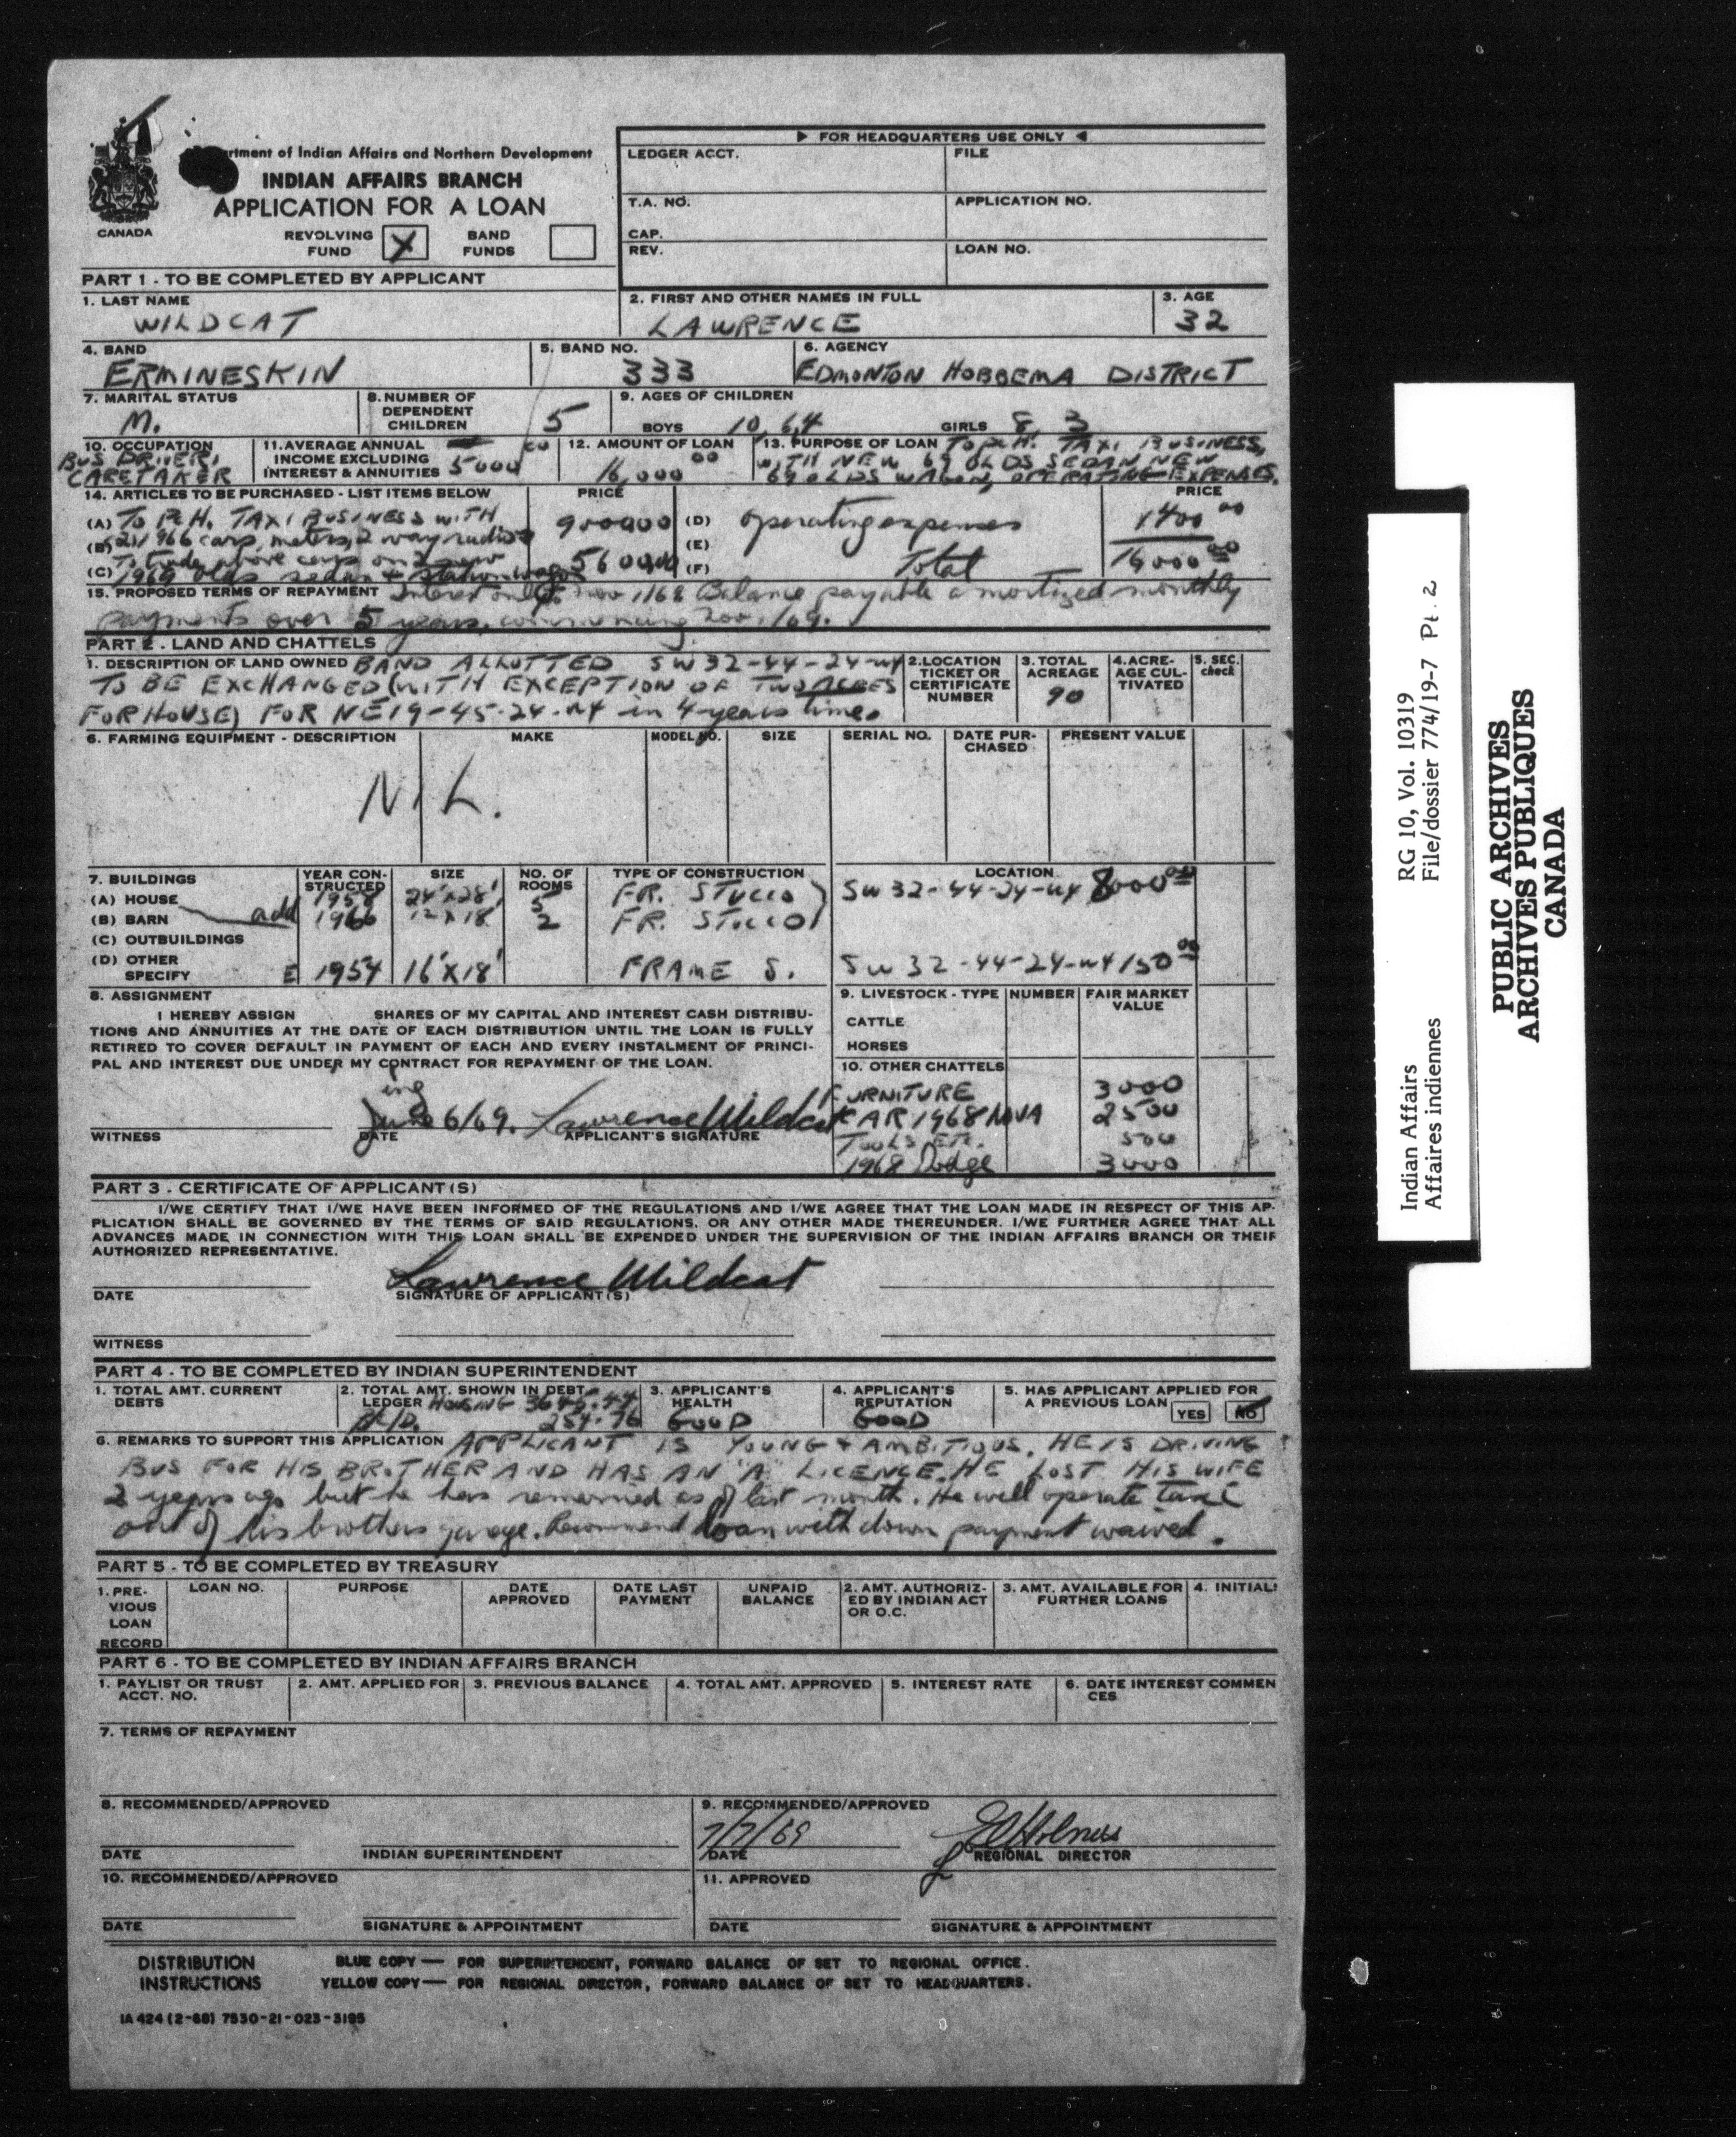 Department of Indian Affairs and Northern Development
INDIAN AFFAIRS BRANCH
APPLICATION FOR A LOAN
CANADA
REVOLVING FUND X BAND FUNDS
FOR HEADQUARTERS USE ONLY
LEDGER ACCT. FILE
T.A. NO. APPLICATION NO.
CAP.
REV. LOAN NO.
PART 1 - TO BE COMPLETED BY APPLICANT
1. LAST NAME 2. FIRST AND OTHER NAMES IN FULL 3. AGE
WILDCAT LAWRENCE 32
4. BAND 5. BAND NO. 6. AGENCY
ERMINESKIN 333 EDMONTON HOBBEMA DISTRICT
7. MARITAL STATUS 8. NUMBER OF DEPENDENT CHILDREN 9. AGES OF CHILDREN
M. 5 BOYS 10, 6, 4 GIRLS 8, 3
10. OCCUPATION 11. AVERAGE ANNUAL INCOME EXCLUDING INTEREST & ANNUITIES 12. AMOUNT OF LOAN 13. PURPOSE OF LOAN
BUS DRIVER, CARETAKER 5000 00 16,000 00 TO PCH. TAXI BUSINESS,
WITH NEW 69 OLDS SEDAN NEW
69 OLDS WAGON, OPERATING EXPENSES.
14. ARTICLES TO BE PURCHASED - LIST ITEMS BELOW PRICE PRICE
(A) TO PCH. TAXI BUSINESS WITH 9000 00 (D) operating expenses 1400 00
(B) (2) 1966 cars, meters, 2 way radios (E)
(C) To trade above cars on 2 new 5600 00 (F) Total 16000 00
1969 Olds sedan + station wagon
15. PROPOSED TERMS OF REPAYMENT Interest only to Nov 1/68 Balance payable amortized monthly
payments over 5 years, commencing Nov. 1/69.
PART 2 - LAND AND CHATTELS
1. DESCRIPTION OF LAND OWNED 2. LOCATION TICKET OR CERTIFICATE NUMBER 3. TOTAL ACREAGE 4. ACREAGE CULTIVATED 5. SEC. check
BAND ALLOTTED SW 32-44-24-W4
TO BE EXCHANGED (WITH EXCEPTION OF TWO ACRES 90
FOR HOUSE) FOR NE 19-45-24-W4 in 4 years time.
6. FARMING EQUIPMENT - DESCRIPTION MAKE MODEL NO. SIZE SERIAL NO. DATE PURCHASED PRESENT VALUE
NIL.
7. BUILDINGS YEAR CONSTRUCTED SIZE NO. OF ROOMS TYPE OF CONSTRUCTION LOCATION
(A) HOUSE 1958 24'x28' 5 FR. STUCCO SW 32-44-24-W4 8000 00
(B) BARN add 1966 12x18 2 FR. STUCCO
(C) OUTBUILDINGS
(D) OTHER SPECIFY 1954 16'x18' FRAME S. SW 32-44-24-W4 150 00
8. ASSIGNMENT
I HEREBY ASSIGN SHARES OF MY CAPITAL AND INTEREST CASH DISTRIBU-
TIONS AND ANNUITIES AT THE DATE OF EACH DISTRIBUTION UNTIL THE LOAN IS FULLY
RETIRED TO COVER DEFAULT IN PAYMENT OF EACH AND EVERY INSTALMENT OF PRINCI-
PAL AND INTEREST DUE UNDER MY CONTRACT FOR REPAYMENT OF THE LOAN.
6/69. Lawrence Wildcat
WITNESS DATE APPLICANT'S SIGNATURE
9. LIVESTOCK - TYPE NUMBER FAIR MARKET VALUE
CATTLE
HORSES
10. OTHER CHATTELS
FURNITURE 3000
CAR 1968 NOVA 2500
TOOLS ETC. 500
1968 Dodge 3000
PART 3 - CERTIFICATE OF APPLICANT(S)
I/WE CERTIFY THAT I/WE HAVE BEEN INFORMED OF THE REGULATIONS AND I/WE AGREE THAT THE LOAN MADE IN RESPECT OF THIS AP-
PLICATION SHALL BE GOVERNED BY THE TERMS OF SAID REGULATIONS, OR ANY OTHER MADE THEREUNDER. I/WE FURTHER AGREE THAT ALL
ADVANCES MADE IN CONNECTION WITH THIS LOAN SHALL BE EXPENDED UNDER THE SUPERVISION OF THE INDIAN AFFAIRS BRANCH OR THEIR
AUTHORIZED REPRESENTATIVE.
Lawrence Wildcat
DATE SIGNATURE OF APPLICANT(S)
WITNESS
PART 4 - TO BE COMPLETED BY INDIAN SUPERINTENDENT
1. TOTAL AMT. CURRENT DEBTS 2. TOTAL AMT. SHOWN IN DEBT LEDGER 3. APPLICANT'S HEALTH 4. APPLICANT'S REPUTATION 5. HAS APPLICANT APPLIED FOR A PREVIOUS LOAN YES NO
HOUSING 3645.44
254.76 GOOD GOOD
6. REMARKS TO SUPPORT THIS APPLICATION APPLICANT IS YOUNG + AMBITIOUS. HE IS DRIVING
BUS FOR HIS BROTHER AND HAS AN "A" LICENCE. HE LOST HIS WIFE
2 years ago but he has remarried as of last month. He will operate taxi
out of his brothers garage. Recommend loan with down payment waived.
PART 5 - TO BE COMPLETED BY TREASURY
1. PREVIOUS LOAN RECORD LOAN NO. PURPOSE DATE APPROVED DATE LAST PAYMENT UNPAID BALANCE 2. AMT. AUTHORIZED BY INDIAN ACT OR O.C. 3. AMT. AVAILABLE FOR FURTHER LOANS 4. INITIALS
PART 6 - TO BE COMPLETED BY INDIAN AFFAIRS BRANCH
1. PAYLIST OR TRUST ACCT. NO. 2. AMT. APPLIED FOR 3. PREVIOUS BALANCE 4. TOTAL AMT. APPROVED 5. INTEREST RATE 6. DATE INTEREST COMMENCES
7. TERMS OF REPAYMENT
8. RECOMMENDED/APPROVED 9. RECOMMENDED/APPROVED
7/7/69
DATE INDIAN SUPERINTENDENT DATE REGIONAL DIRECTOR
10. RECOMMENDED/APPROVED 11. APPROVED
DATE SIGNATURE & APPOINTMENT DATE SIGNATURE & APPOINTMENT
DISTRIBUTION INSTRUCTIONS
BLUE COPY — FOR SUPERINTENDENT, FORWARD BALANCE OF SET TO REGIONAL OFFICE.
YELLOW COPY — FOR REGIONAL DIRECTOR, FORWARD BALANCE OF SET TO HEADQUARTERS.
IA 424 (2-68) 7530-21-023-3195
Indian Affairs RG 10, Vol. 10319
Affaires indiennes File/dossier 774/19-7 Pt. 2
PUBLIC ARCHIVES
ARCHIVES PUBLIQUES
CANADA